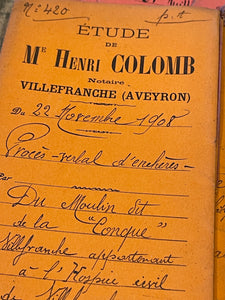 No 420 p.t
ÉTUDE
DE
Me HENRI COLOMB
Notaire
VILLEFRANCHE (AVEYRON)
Du 22 Novembre 1908
Procès-verbal d'enchères -
Par
Du Moulin dit
de la "Conque"
Villefranche appartenant
à l'Hospice civil
de Villefranche